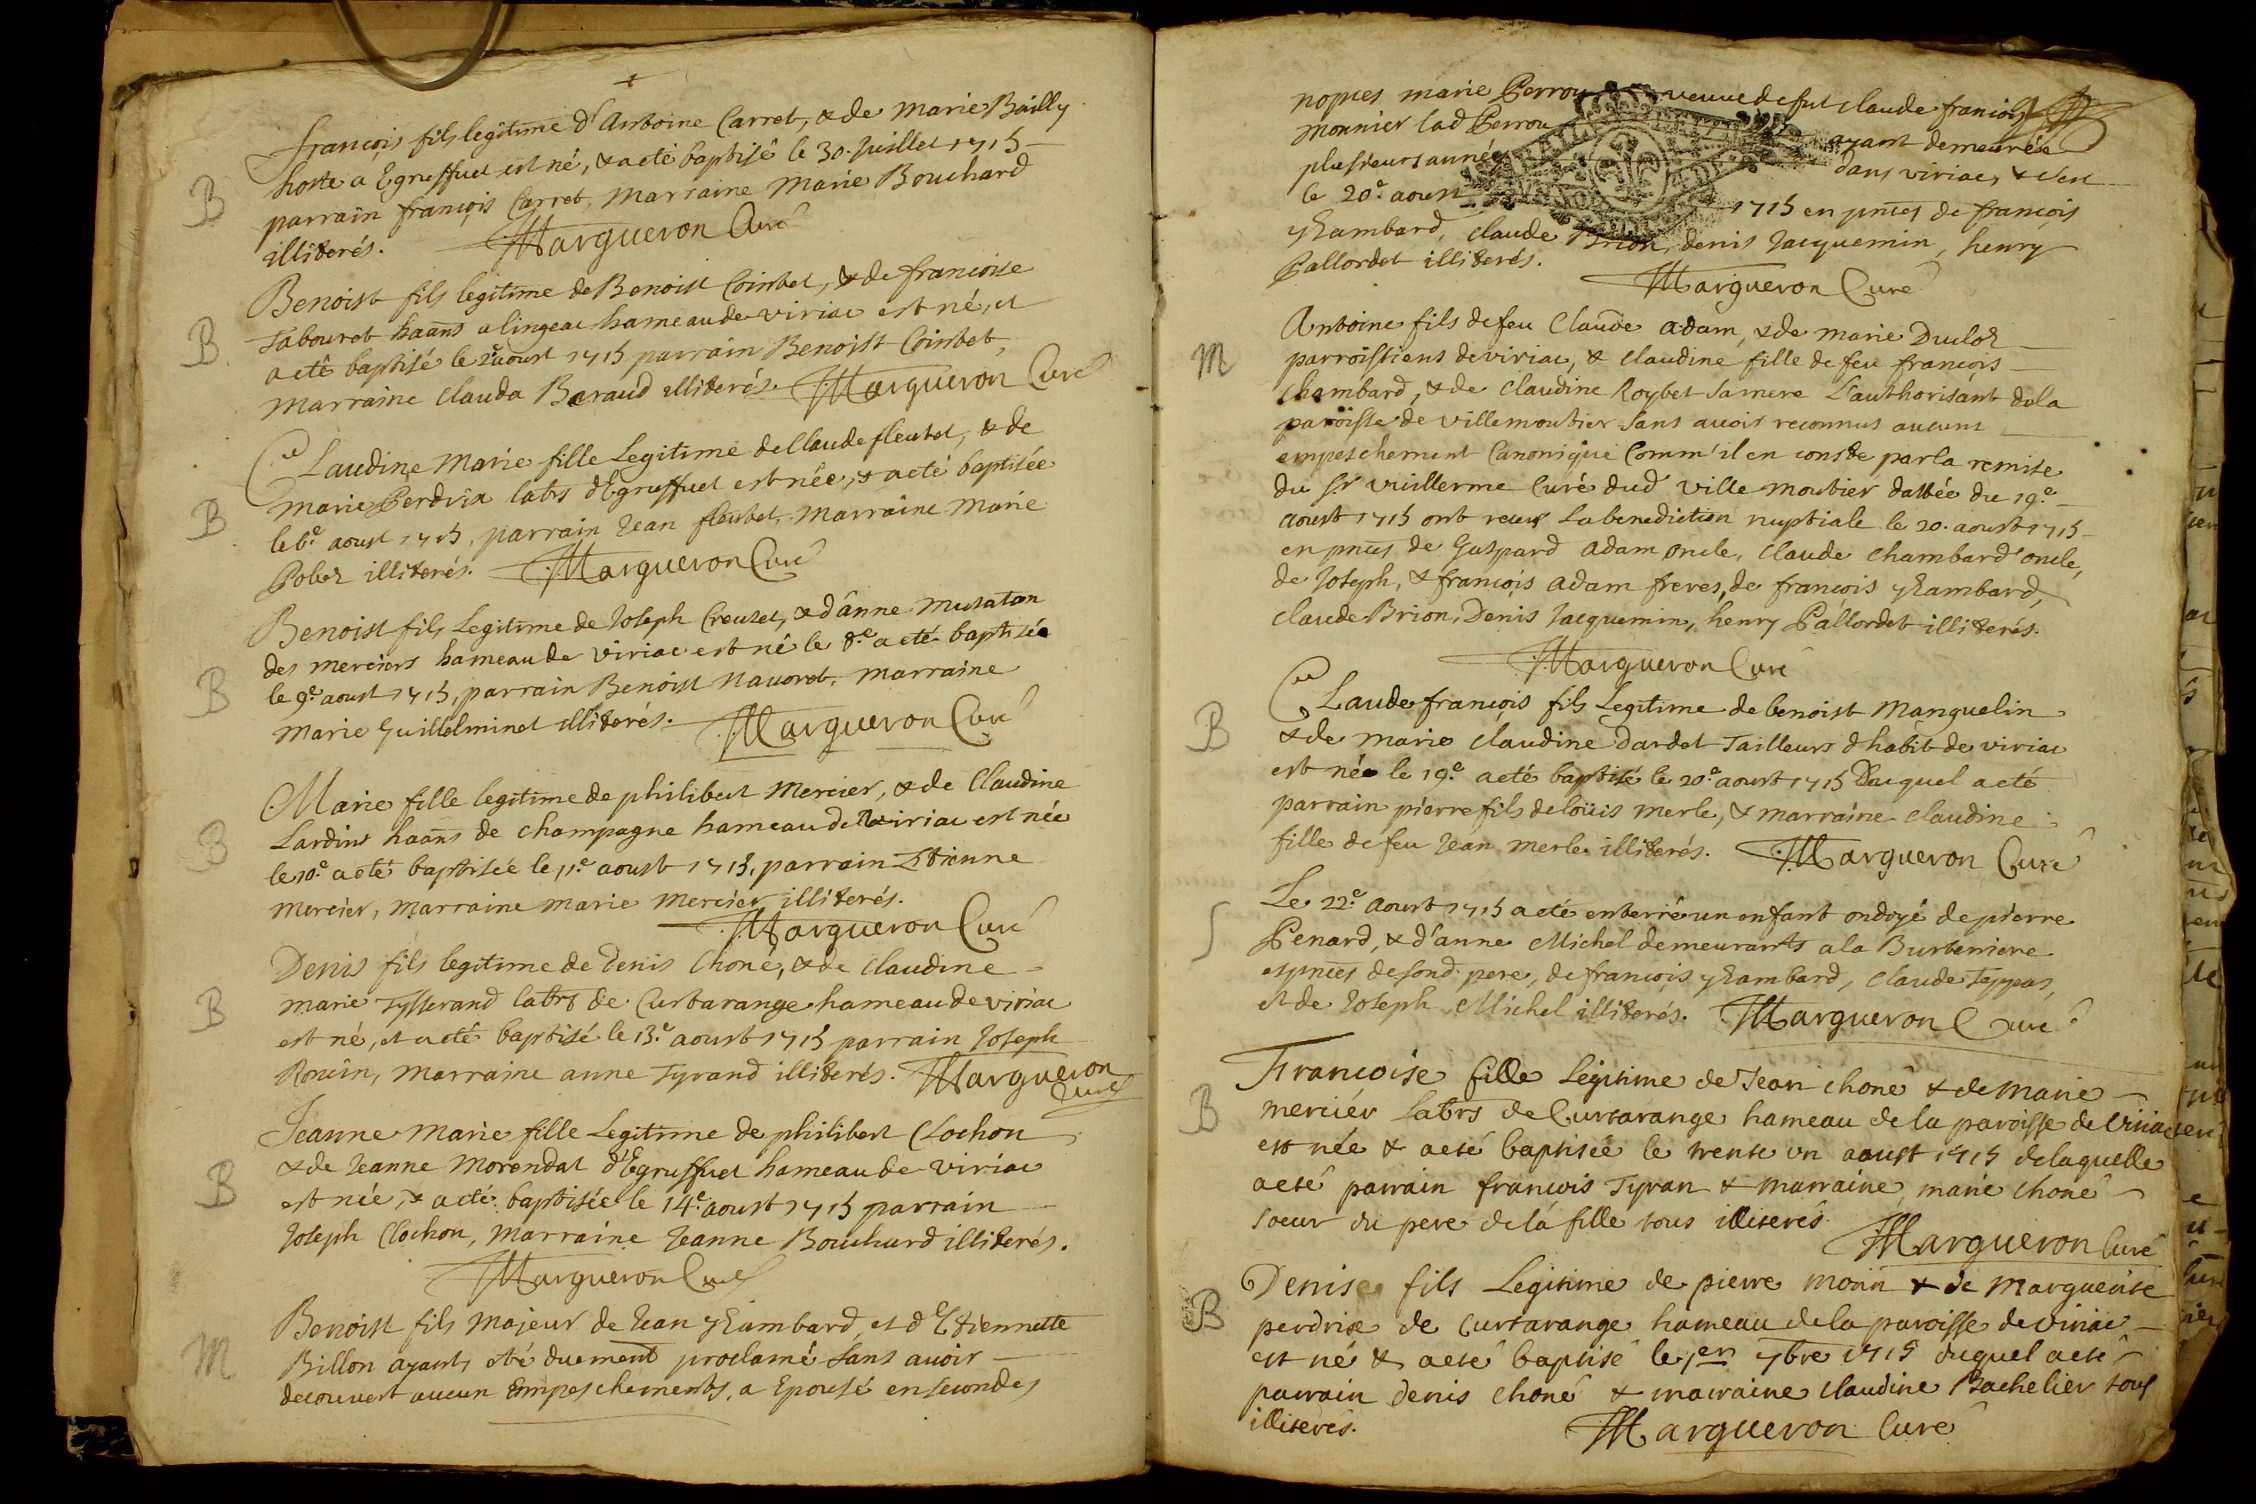 B
françois fils legitime d'Antoine Carret, & de marie Bailly
hoste a Egreffuel est né, & a eté baptisé le 30. Juillet 1715
parrain françois Carret, marraine Marie Bouchard
illiterés. Margueron Curé
B
Benoist fils legitime de Benoist Cointet, & de francoise
Tabouret haãns a lingeac hameau de viriac est né, et
a eté baptisé le 2e aoust 1715 parrain Benoist Cointet,
marraine Clauda Beraud illiterés. Margueron Curé
B
Claudine Marie fille Legitime de Claude fleutet, & de
marie Perdrix labrs d'Egreffuel est née, & a eté baptisée
le 6e. aoust 1715, parrain Jean fleutet, marraine Marie
Pobel illiterés. Margueron Curé
B
Benoist fils Legitime de Joseph Creuzet, & d'anne Mutaton
des merciers hameau de viriac est né le 8.e a eté baptisée
le 9.e aoust 1715, parrain Benoist Navoret, marraine
marie Guillelminet illiterés. Margueron Curé
B
Marie fille legitime de philibert Mercier, & de Claudine
Lardin haãns de champagne hameau de viriac est née
le 10.e a eté baptisée le 11.e aoust 1715, parrain Etienne
mercier, marraine marie mercier illiterés.
Margueron Curé
B
Denis fils legitime de denis Choné, & de Claudine
marie Tysserand labrs de Curtarange hameau de viriac
est né, et a eté baptisé le 13.e aoust 1715 parrain Joseph
marraine anne Tyrand illiterés. Margueron
Curé
B
Jeanne Marie fille Legitime de philibert Clochon
& de Jeanne Morendat d'Egreffuel hameau de viriac
est née, & a eté baptisée le 14.e aoust 1715 parrain
Joseph Clochon, marraine Jeanne Bouchard illiterés.
Margueron Curé
M
Benoist fils majeur de Jean et d'Etiennette
Billon ayants eté duement proclamé sans avoir
decouvert aucun Empeschements, a Epousé en secondes
nopces marie Perrou veuve de fut claude françois
monnier lad Perrou ayant demeurée
plusieurs année dans viriac, &
le 20.e aoust 1715 en pnces de françois
claude Brion, denis Jacquemin, henry
Pallordet illiterés.
Margueron Curé
M
Antoine fils de feu Claude adam, & de marie Duclos
parroissiens de viriac, & claudine fille de feu françois
Chambard, & de claudine Roybet sa mere L'authorisant de la
paroisse de villemoutier sans avoir reconnus aucuns
empeschement Canonique Comm'il en conste par la remise
du sr vuillerme Curé dud ville moutier dattée du 19.e
aoust 1715 ont receu La benediction nuptiale le 20. aoust 1715
en pnces de Gaspard adam oncle, Claude Chambard oncle,
de Joseph, & françois adam freres, de françois
claude Brion, Denis Jacquemin, henry Pallordet illiterés.
Margueron Curé
B
Claude françois fils Legitime de benoist Manguelin
& de marie claudine dardet Tailleurs d'habit de viriac
est née le 19.e a eté baptisé le 20.e aoust 1715 Duquel a eté
parrain pierre fils de loüis merle, & marraine claudine
fille de feu Jean merle illiterés. Margueron Curé
S
Le 22.e aoust 1715 a eté enterré un enfant ondoyé de pierre
Penard, & d'anne Michel demeurants a la Burteniere
es pnces de sond. pere, de françois claude Teppas,
et de Joseph Michel illiterés. Margueron Curé
B
Francoise fille Legitime de Jean choné & de marie
merciér Labrs de Curtarange hameau de la paroisse de viriac
est née & a eté baptisée le trente un aoust 1715 de laquelle
a eté parrain francois Tyran & marraine marie choné
soeur du pere de la fille tous illiterés
Margueron Curé
B
Denise fils Legitime de pierre monin & de marguerite
perdrix de Curtarange hameau de la paroisse de viriac
est né & a eté baptisé le 1er 7bre 1715 duquel a eté
parrain denis choné & marraine claudine Bachelier tous
illiterés. Margueron Curé